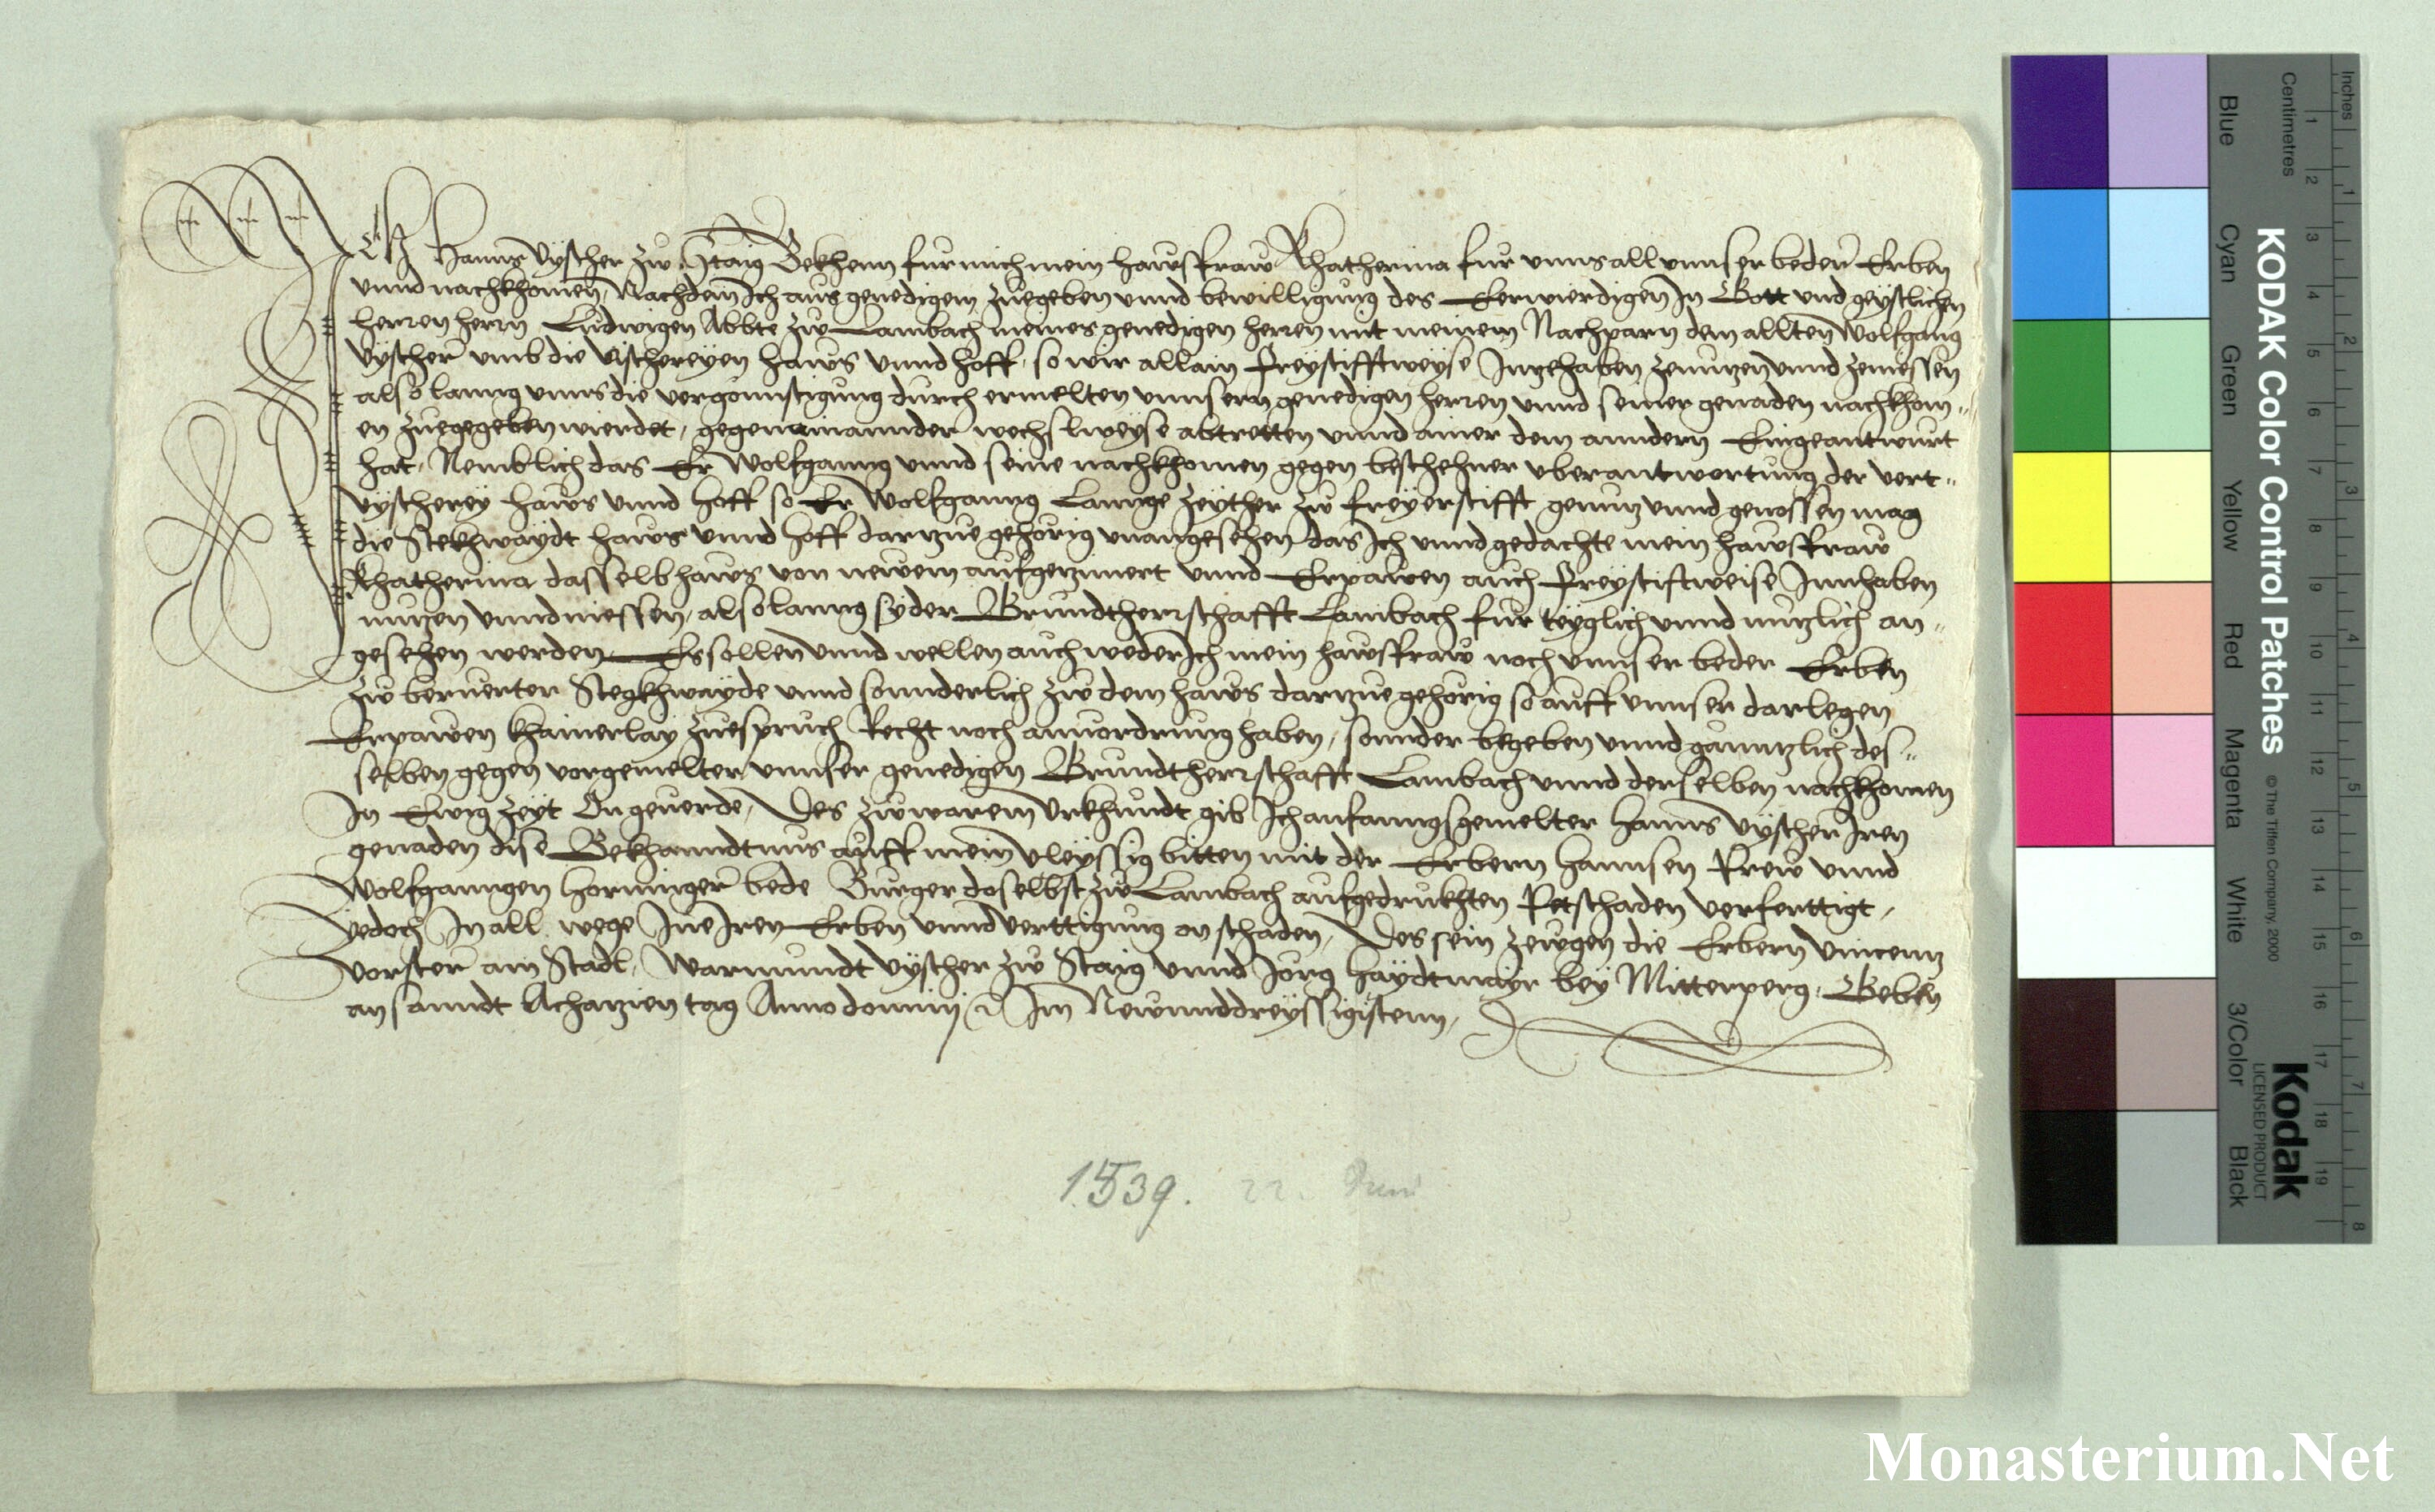 ICH Hanns Vyscher zw Staig Bekhenn fur mich mein hawsfraw Khatherina fur vnns all vnnser beder Erben
vnnd nachkhomen, Nachdem Ich aus genedigem zuegeben vnnd bewilligung des Eerwierdigen In Gott vnd geystlichen
herren herrn Ludwigen Abbte zw Lambach meines genedigen herren mit meinem Nachparn dem allten Wolfgang
Vyscher vmb die vischereyen haws vnnd hoff, so wir allain freystifftweyse Inzehaben zenutzen vnnd zeniessen
also lanng vnns die vergonnstigung durch ermelten vnnsern genedigen herren vnnd seiner genaden nachkhom„
en zuegegeben wierdet, gegeneinannder wechslweyse abtretten vnnd ainer dem anndern Eingeantwurt
hat, Nemblich das Er Wolfganng vnnd seine nachkhomen gegen beschehner vberantwortung der vert„
vyscherey haws vnnd hoff so Er Wolfganng Lannge zeyther zw freyerstifft genutz vnnd genossen mag
die Stekhwaydt haws vnnd hoff dartzue gehorig vnangesehen das Ich vnnd gedachte mein hawsfraw
Khatherina dasselb haws von newem aufgetzimert vnnd Erpawen auch freystiftweise Innhaben
nutzen vnnd niessen, also lanng syder Grundtherrschafft Lambach fur teyglich vnnd nutzlich an„
gesehen werden, Es sollen vnnd wellen auch weder Ich mein hawsfraw noch vnnser beder Erben
zw beruerter Stegkhwayde vnnd sonnderlich zw dem haws dartzue gehorig so auff vnnser darlegen
Erpawen khainerlay zuespruch Recht noch anuordrung haben, sonnder begeben vnnd ganntzlich des„
selben gegen vorgemelter vnnser genedigen Grundtherrschafft Lambach vnnd derselben nachkhomen
In Ewig zeyt On geuerde, Des zw warem Vrkhundt gib Ich anfanngsgemelter Hanns Vyscher Iren
genaden dise Bekhanndtnus auff mein vleyssig bitten mit der Erbern Hannsen Krew vnnd
Wolfganngen Horninger bede Burger doselbst zw Lambach aufgedrukhten Petschaden verferttigt,
yedoch In all wege Ine Iren Erben vnnd verttigung on schaden, Des sein zewgen die Erbern Vincenntz
Vorster am Stadl, Warmundt Vyscher zw Staig vnnd Jorg Haydtmayr bey Mitterperg, Geben
an sanndt Achatzien tag Anno dominij (etc) Im Newnunddreyssigistenn,
1539. 22. Juni
KODAK Color Control Patches
© The Tiffen Company, 2000
Kodak
LICENSED PRODUCT
Blue Cyan Green Yellow Red Magenta White 3/Color Black
Inches 1 2 3 4 5 6 7 8
Centimetres 1 2 3 4 5 6 7 8 9 10 11 12 13 14 15 16 17 18 19
Monasterium.Net